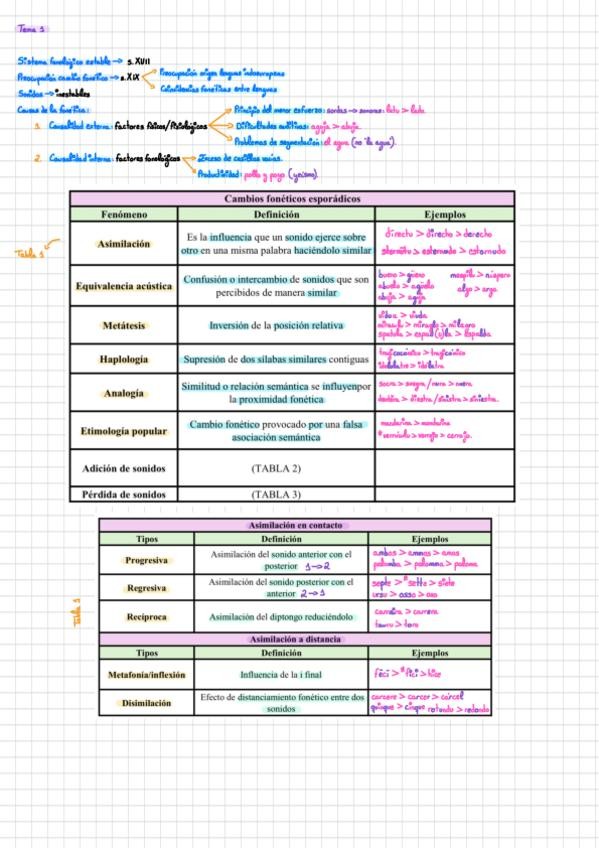 Tema 1
Sistema fonológico estable → s. XVII
Preocupación cambio fonético → s. XIX
Preocupación origen lenguas indoeuropeas
Coincidencias fonéticas entre lenguas
Sonidos → inestables
Causas de la fonética:
1. Causalidad externa: factores físicos/fisiológicos
Principio del menor esfuerzo: sordas → sonoras: latu > lado.
Dificultades auditivas: aguja > abuja.
Problemas de segmentación: el agua (no la agua).
2. Causalidad interna: factores fonológicos
Exceso de casillas vacías.
Productividad: pollo y poyo (yeísmo).
Tabla 1
Cambios fonéticos esporádicos
Fenómeno Definición Ejemplos
Asimilación
Es la influencia que un sonido ejerce sobre
otro en una misma palabra haciéndolo similar
directu > directo > derecho
> estornudo
Equivalencia acústica
Confusión o intercambio de sonidos que son
percibidos de manera similar
bueno > güeno
abuelo > agüelo
abuja > aguja
> níspero
algo > argo
Metátesis
Inversión de la posición relativa
vidua > viuda
> milagro
spatula > espalda
Haplología
Supresión de dos sílabas similares contiguas
tragicocómico > tragicómico
> idólatra
Analogía
Similitud o relación semántica se influyenpor
la proximidad fonética
socra > suegra/nura > nuera
> diestra/sinistra > siniestra.
Etimología popular
Cambio fonético provocado por una falsa
asociación semántica
mandarina >
> cerrojo.
Adición de sonidos (TABLA 2)
Pérdida de sonidos (TABLA 3)
Tabla 1
Asimilación en contacto
Tipos Definición Ejemplos
Progresiva
Asimilación del sonido anterior con el
posterior 1→2
ambas > ammas > amas
palomba > palomma > paloma
Regresiva
Asimilación del sonido posterior con el
anterior 2→1
septe > *sette > siete
ursu > osso > oso
Recíproca
Asimilación del diptongo reduciéndolo
carraira > carrera
tauru > toro
Asimilación a distancia
Tipos Definición Ejemplos
Metafonía/inflexión
Influencia de la i final
fēci > *fici > hice
Disimilación
Efecto de distanciamiento fonético entre dos
sonidos
carcere > carcer > cárcel
quinque > cinque rotundu > redondo